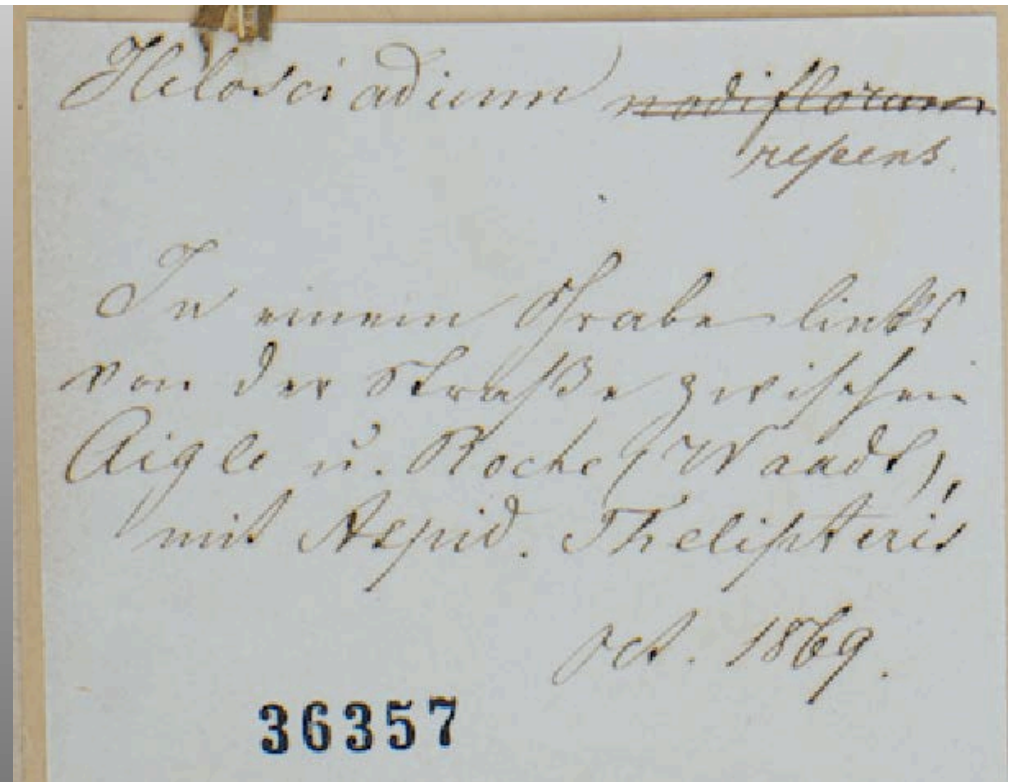 Helosciadium nodiflorum
repens.
In einem Graben links
von der Straße zwischen
Aigle u. Roche (Waadt),
mit Aspid. Thelipteris
Oct. 1869.
36357